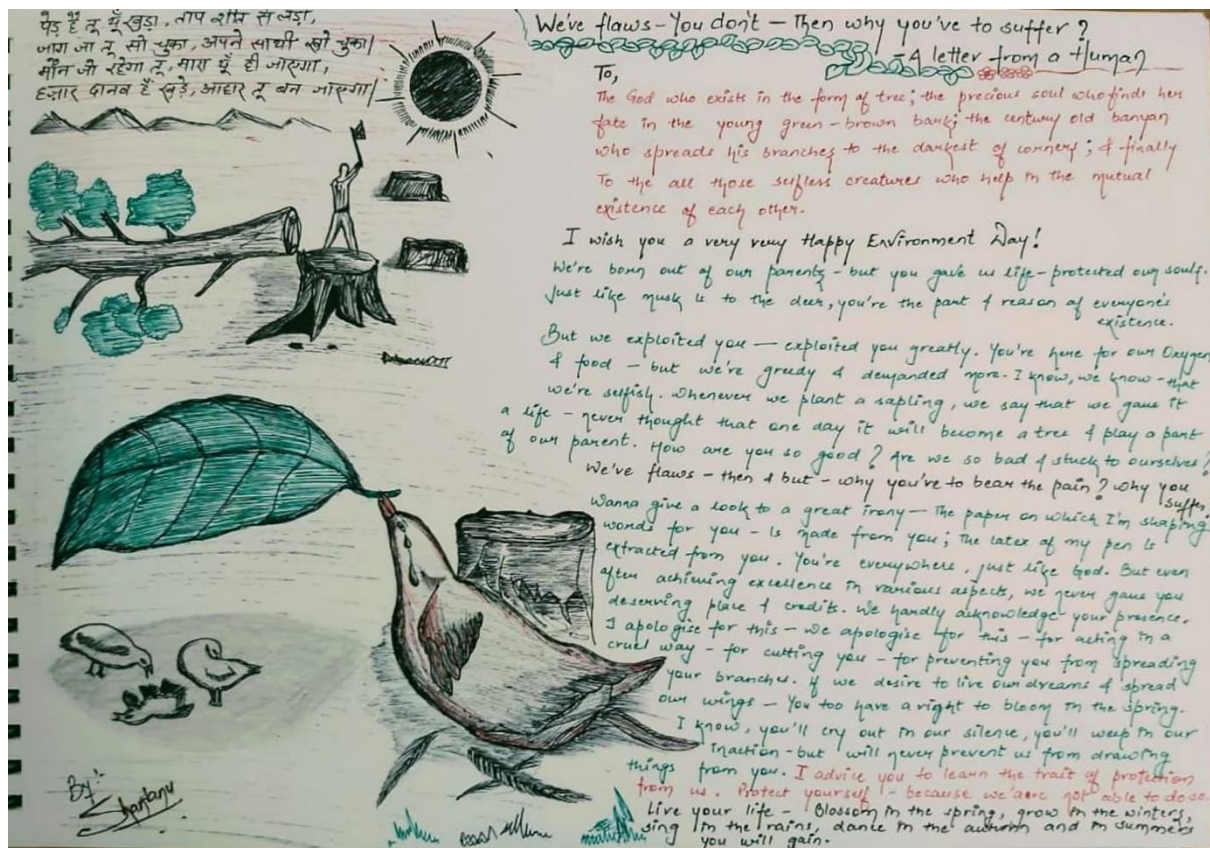 पेड़ है तू यूँ खड़ा, ताप शीत से लड़ा,
जाग जा तू सो चुका, अपने साथी खो चुका|
मौन जो रहेगा तू, मारा यूँ ही जाएगा,
हज़ार दानव हैं खड़े, आहार तू बन जाएगा|
We've flaws – You don't – Then why you've to suffer ?
– A letter from a Human
To,
The God who exists in the form of tree; the precious soul who finds her
fate in the young green – brown bark; the century old banyan
who spreads his branches to the darkest of corners ; & finally
To the all those selfless creatures who help in the mutual
existence of each other.
I wish you a very very Happy Environment Day!
We're born out of our parents – but you gave us life – protected our souls.
Just like musk is to the deer, you're the part & reason of everyone's
existence.
But we exploited you — exploited you greatly. You're here for our Oxygen
& food – but we're greedy & demanded more. I know, we know – that
we're selfish. Whenever we plant a sapling, we say that we gave it
a life – never thought that one day it will become a tree & play a part
of our parent. How are you so good ? Are we so bad & stuck to ourselves ?
We've flaws – then & but – why you've to bear the pain ? Why you
suffer.
Wanna give a look to a great irony — The paper on which I'm shaping
words for you – Is made from you ; The latex of my pen is
extracted from you. You're everywhere, just like God. But even
after achieving excellence in various aspects, we never gave you
deserving place & credits. We hardly acknowledge your presence.
I apologise for this – we apologise for this – for acting in a
cruel way – for cutting you – for preventing you from spreading
your branches. If we desire to live our dreams & spread
our wings – You too have a right to bloom in the spring.
I know, you'll cry out in our silence, you'll weep in our
inaction – but will never prevent us from drawing
things from you. I advice you to learn the trait of protection
from us. Protect yourself – because we'are not able to do so.
Live your life – Blossom in the spring, grow in the winters,
sing in the rains, dance in the autumn and in summers
you will gain.
By:
Shantanu